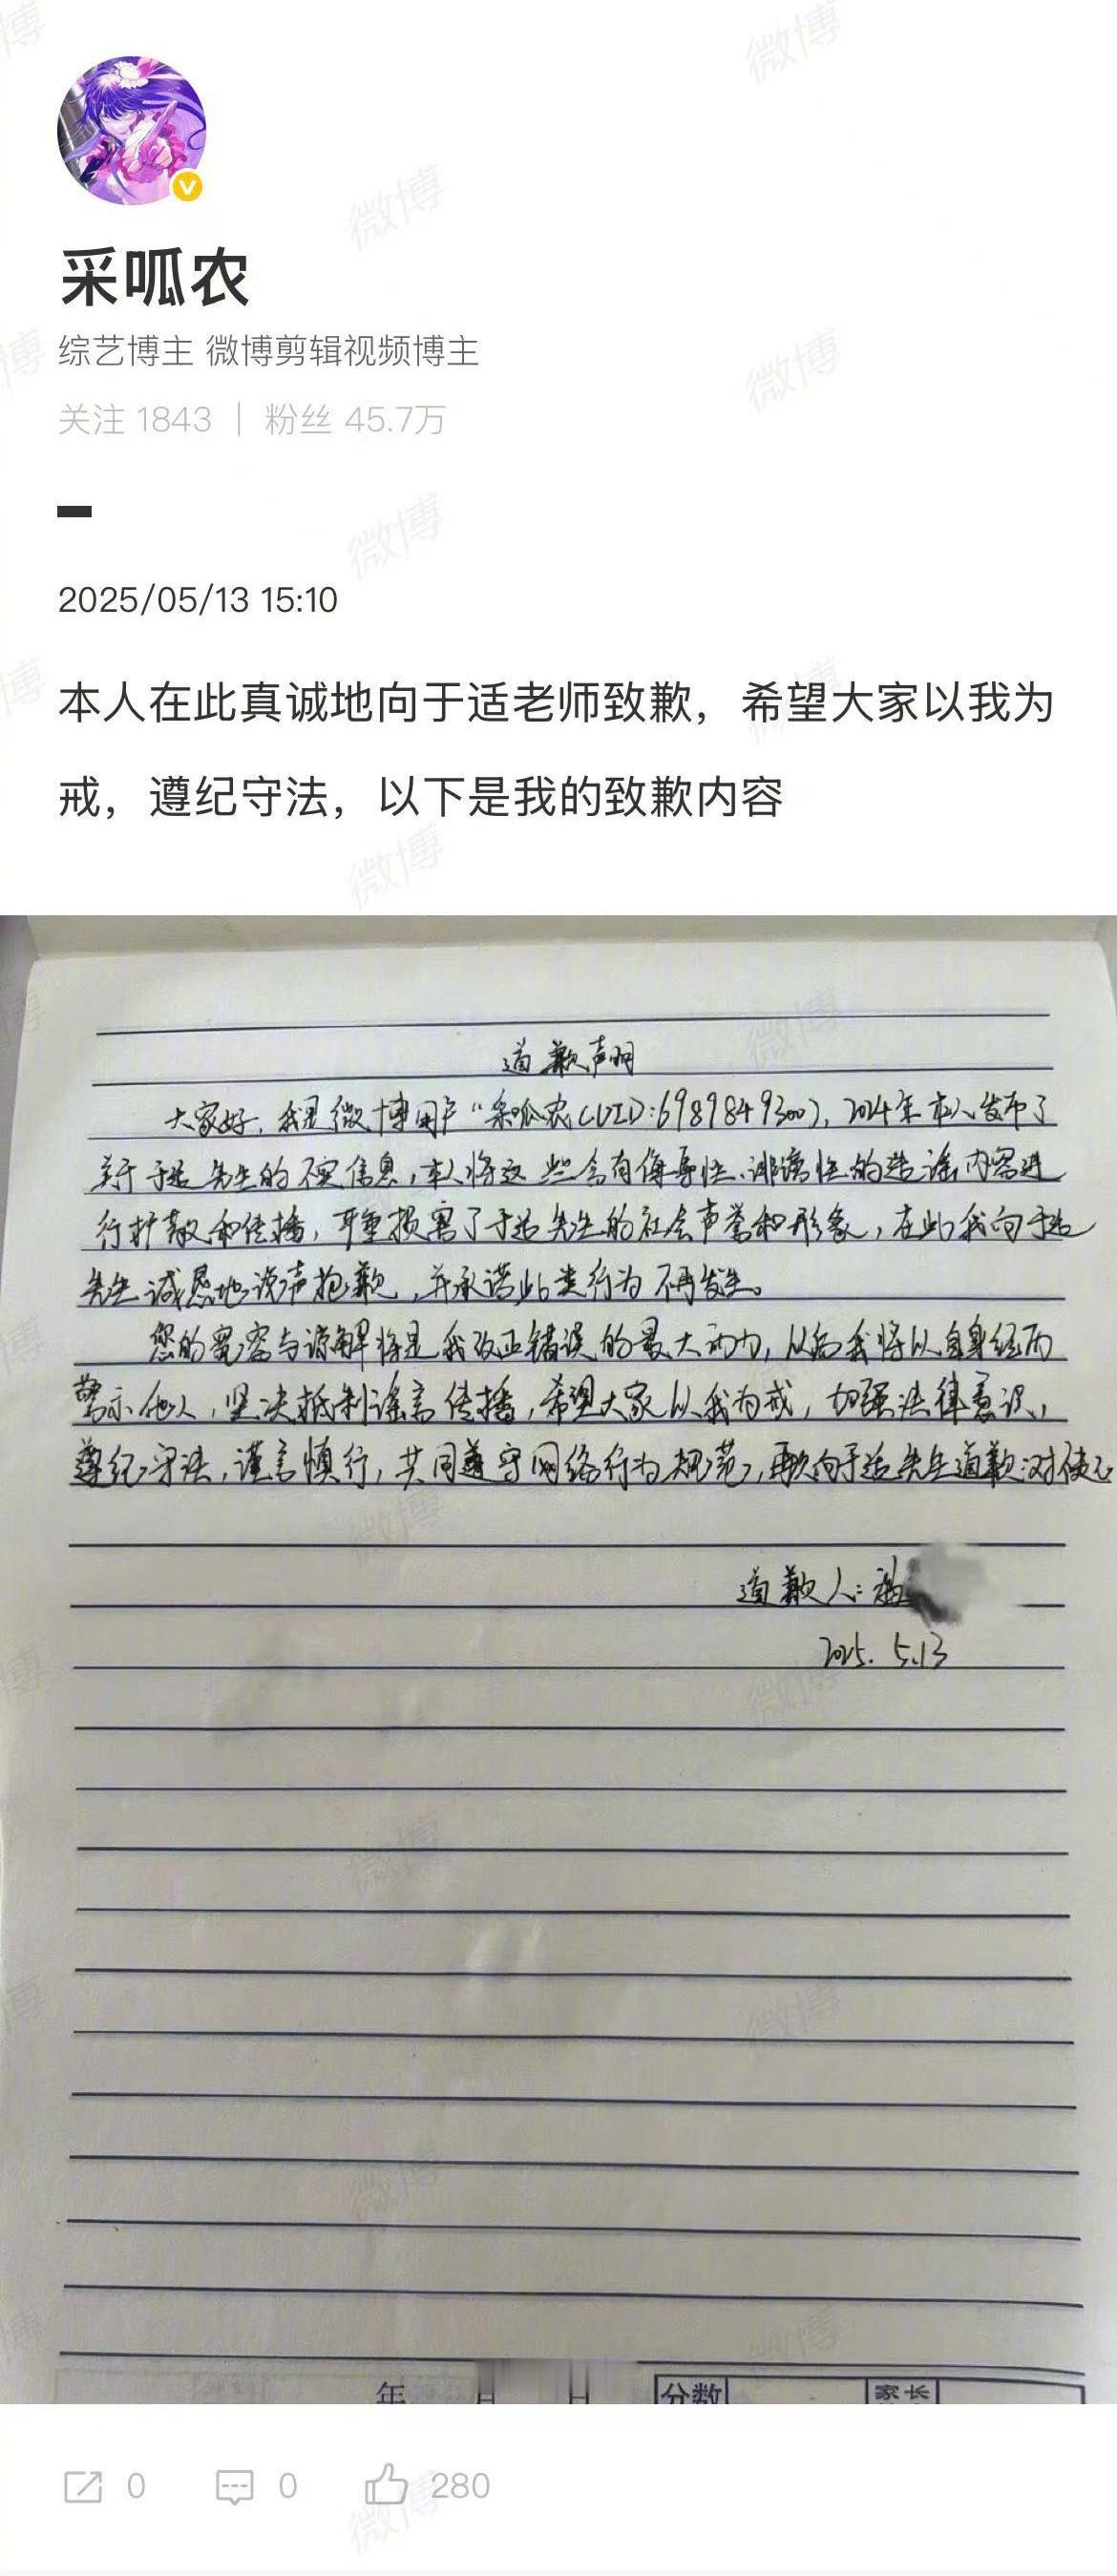 采呱农
综艺博主 微博剪辑视频博主
关注 1843 | 粉丝 45.7万
2025/05/13 15:10
本人在此真诚地向于适老师致歉，希望大家以我为
戒，遵纪守法，以下是我的致歉内容
道歉声明
大家好，我是微博用户“采呱农(UID:6989849300)，2024年本人发布了
关于于适先生的不实信息，本人将这些含有侮辱性、诽谤性的造谣内容进
行扩散和传播，严重损害了于适先生的社会声誉和形象，在此我向于适
先生诚恳地说声抱歉，并承诺此类行为不再发生。
您的宽容与谅解将是我改正错误的最大动力，以后我将以自身经历
警示他人，坚决抵制谣言传播，希望大家以我为戒，加强法律意识，
遵纪守法，谨言慎行，共同遵守网络行为规范，再次向于适先生道歉:对
道歉人：
2025. 5.13
年 月 日 分数 家长
0 0 280
微博